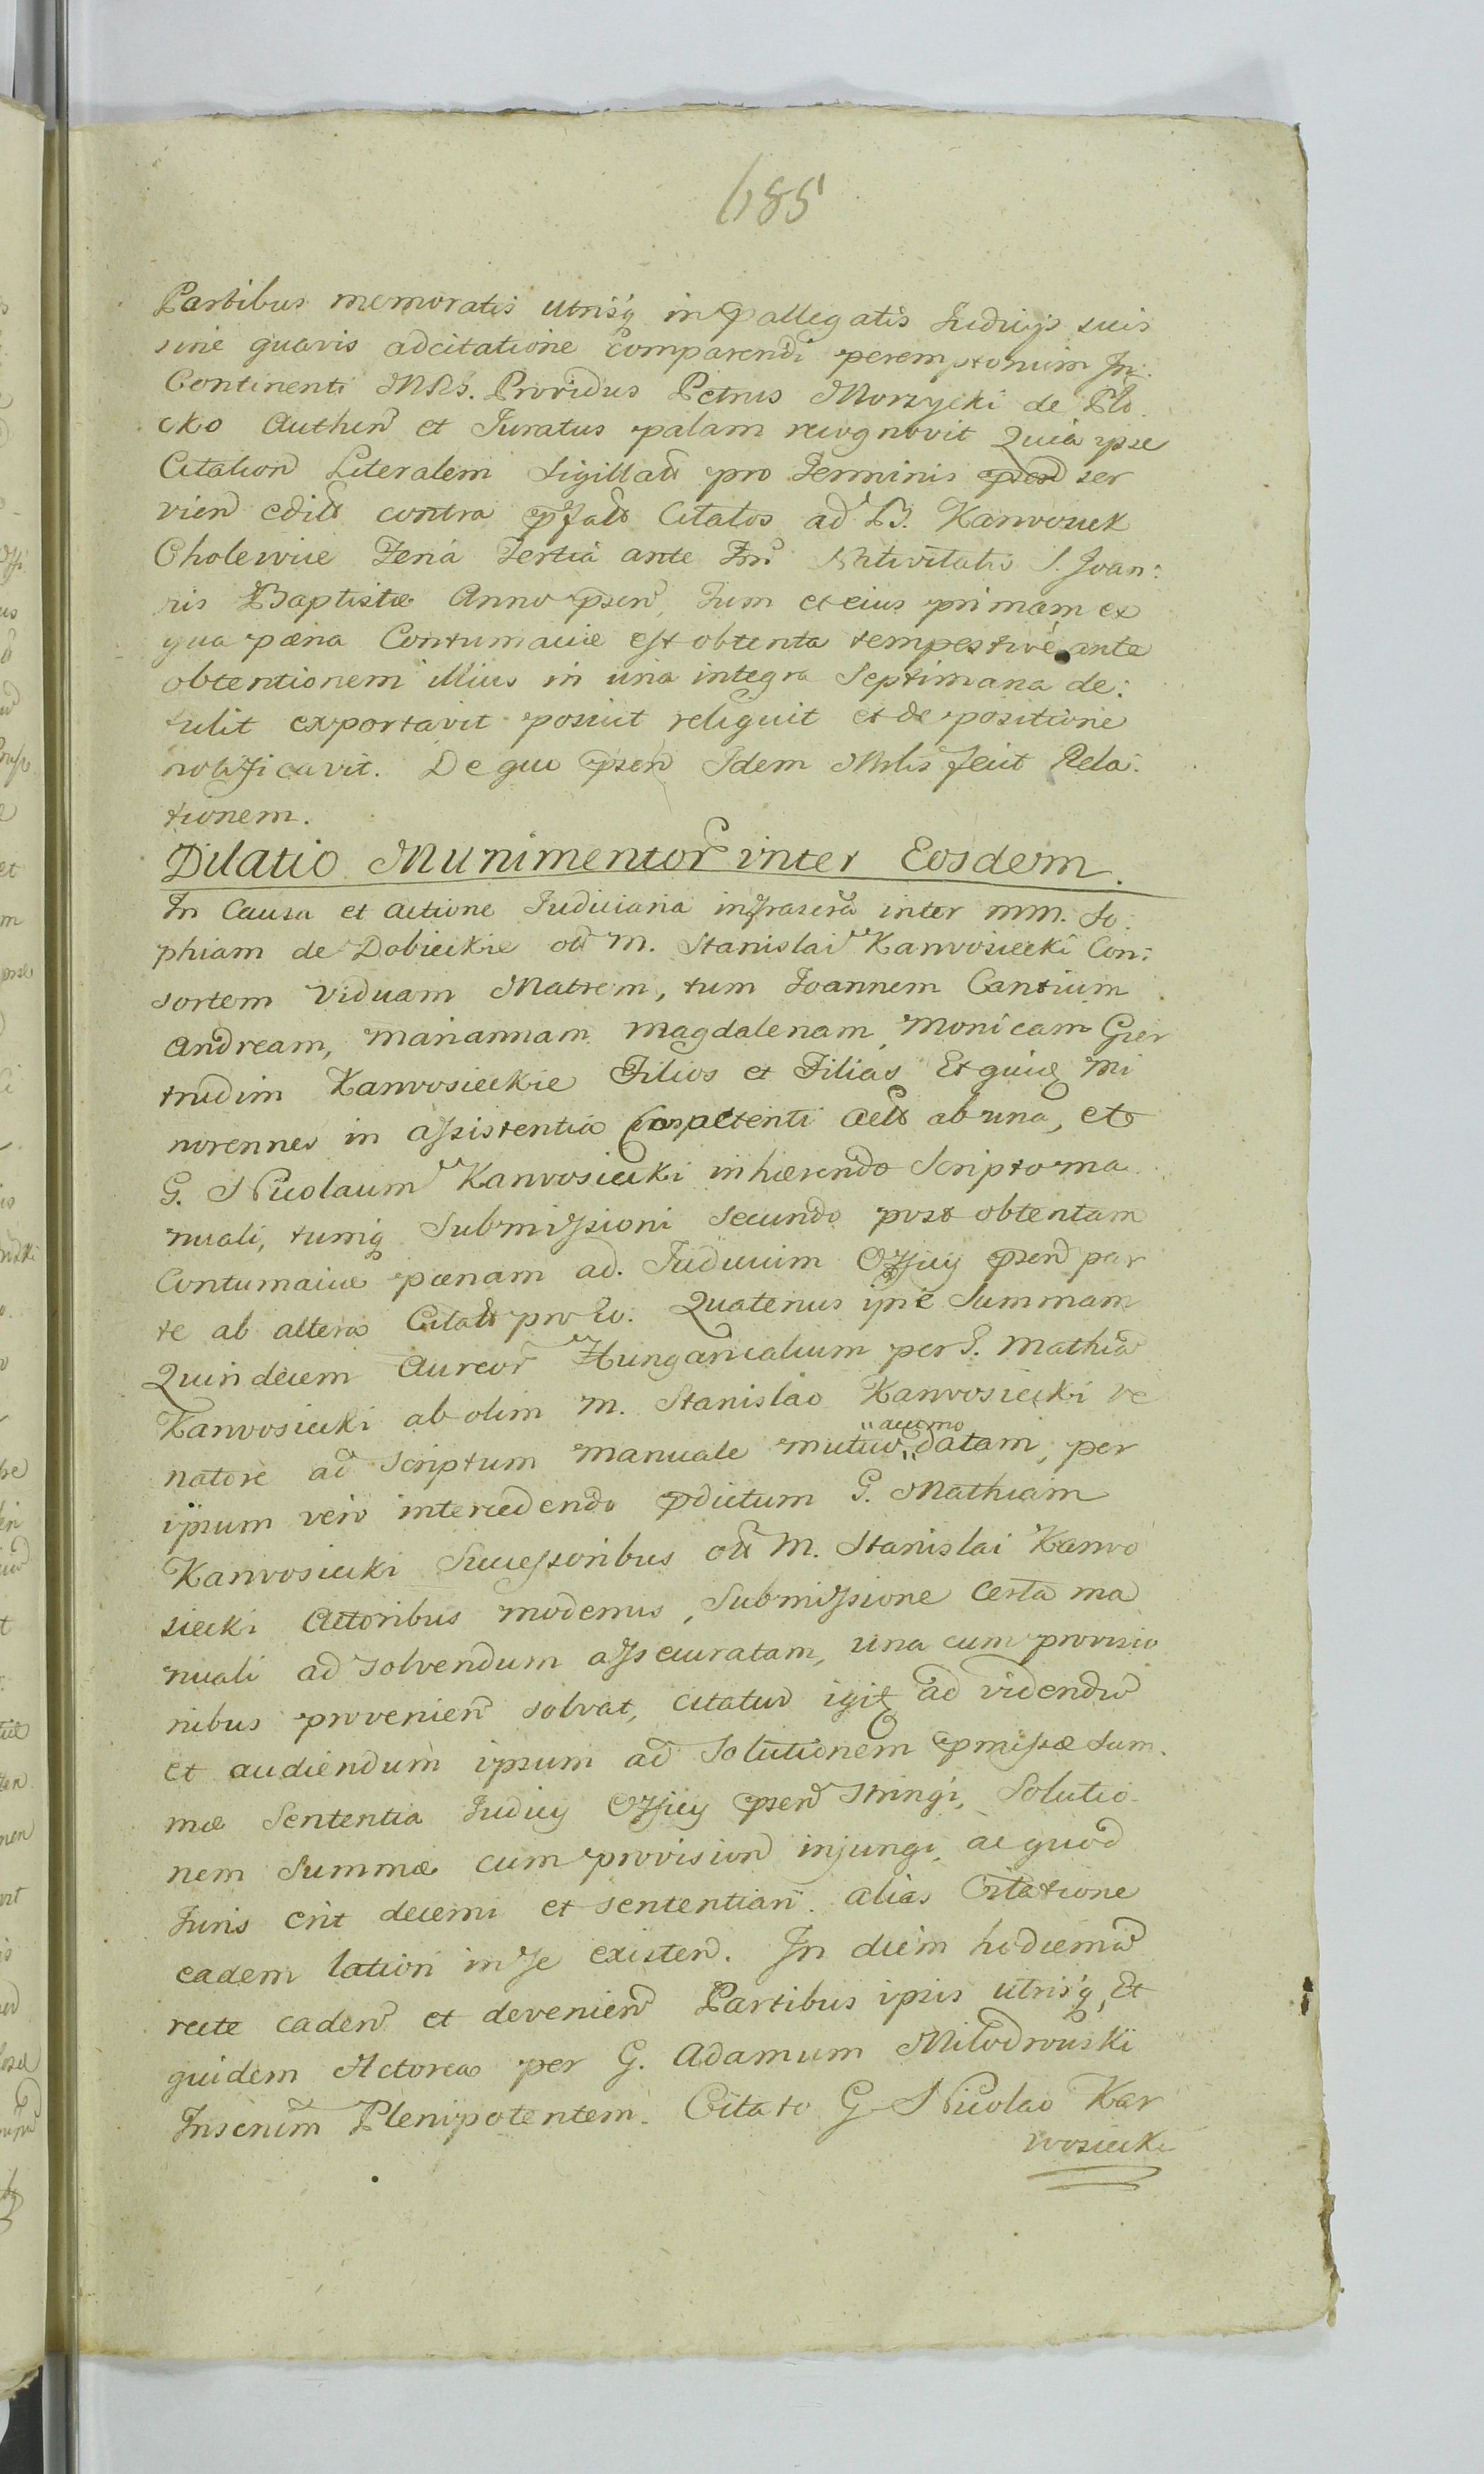 685
Partibus memoratis utrisq in pallegatis Judicijs suis
sine quavis adcitatione comparendi peremptorium In:
Continenti MRS. Providus Petrus Morzycki de Plo
cko Authen et Juratus palam recognovit Quia ipse
Citation Literalem Sigillatt pro Terminis psen ser
vien edilt contra pfatt Citatos ad B. Karwosiek
Cholewice Feria Tertia ante Fm Nativitatis S. Joan:
nis Baptistæ Anno psen, Tum et eius primam ex
qua pæna Contumaciæ est obtenta tempestivè ante
obtentionem illius in una integra Septimana de:
tulit exportavit posuit reliquit et de positione
notificavit. De quo psen Idem Mrlis fecit Rela:
tionem.
Dilatio Munimentor inter Eosdem.
In Causa et Actione Judiciaria infrascra inter MM. So:
phiam de Dobieckie ott M. Stanislai Karwosiecki Con:
sortem Viduam Matrem, tum Joannem Cantium
Andream, Mariannam Magdalenam, Monicam Gier
trudim Karwosieckie Filios et Filias Et quidẽ Mi
norennes in assistentia Competenti Actt ab una, et
G. Nicolaum Karwosiecki inhærendo Scripto ma
nuali, tumq Submissioni Secundo post obtentam
Contumaciæ pænam ad Judicium Officij psen par
te ab altera Citatt pro eo: Quatenus ipse Summam
Quindecem Aureor Hungaricalium per G. Mathia
Karwosiecki ab olim M. Stanislao Karwosiecki Ve
natore ad Scriptum Manuale mutuo datam, per
ipsum vero intercedendo pdictum G. Mathiam
Karwosiecki Successoribus ott M. Stanislai Karwo
siecki Actoribus modernis, Submissione certa ma
nuali ad solvendum assecuratam, una cum provisio
nibus provenien solvat, citatur igit ad videndu
et audiendum ipsum ad Solutionem pmissæ sum
mæ Sententia Judicij Officij psen stringi, Solutio
nem Summæ cum provision injungi, ac quod
Juris erit decerni et sententiari. alias Citatione
eadem lation in se existen. In diem hodierna
recte caden et devenien Partibus ipsis utrisq, Et
quidem Actorea per G. Adamum Milodrowski
Inscrium Plenipotentem. Citato G. Nicolao Kar
wosiecki